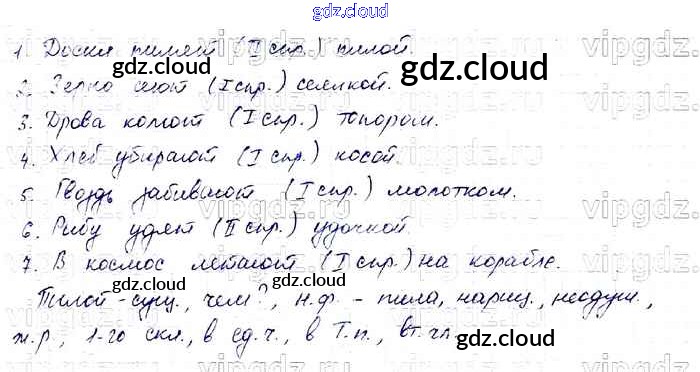 gdz.cloud
1. Доски пилят (II спр.) пилой.
2. Зерно сеют (I спр.) сеялкой.
3. Дрова колют (I спр.) топором.
4. Хлеб убирают (I спр.) косой.
5. Гвоздь забивают (I спр.) молотком.
6. Рыбу удят (II спр.) удочкой.
7. В космос летают (I спр.) на корабле.
Пилой - сущ., чем?, н.ф. - пила, нариц., неодуш.,
ж.р., 1-го скл., в ед.ч., в Т.п., вт. чл.
gdz.cloud
gdz.cloud
gdz.cloud
gdz.cloud
gdz.cloud
gdz.cloud